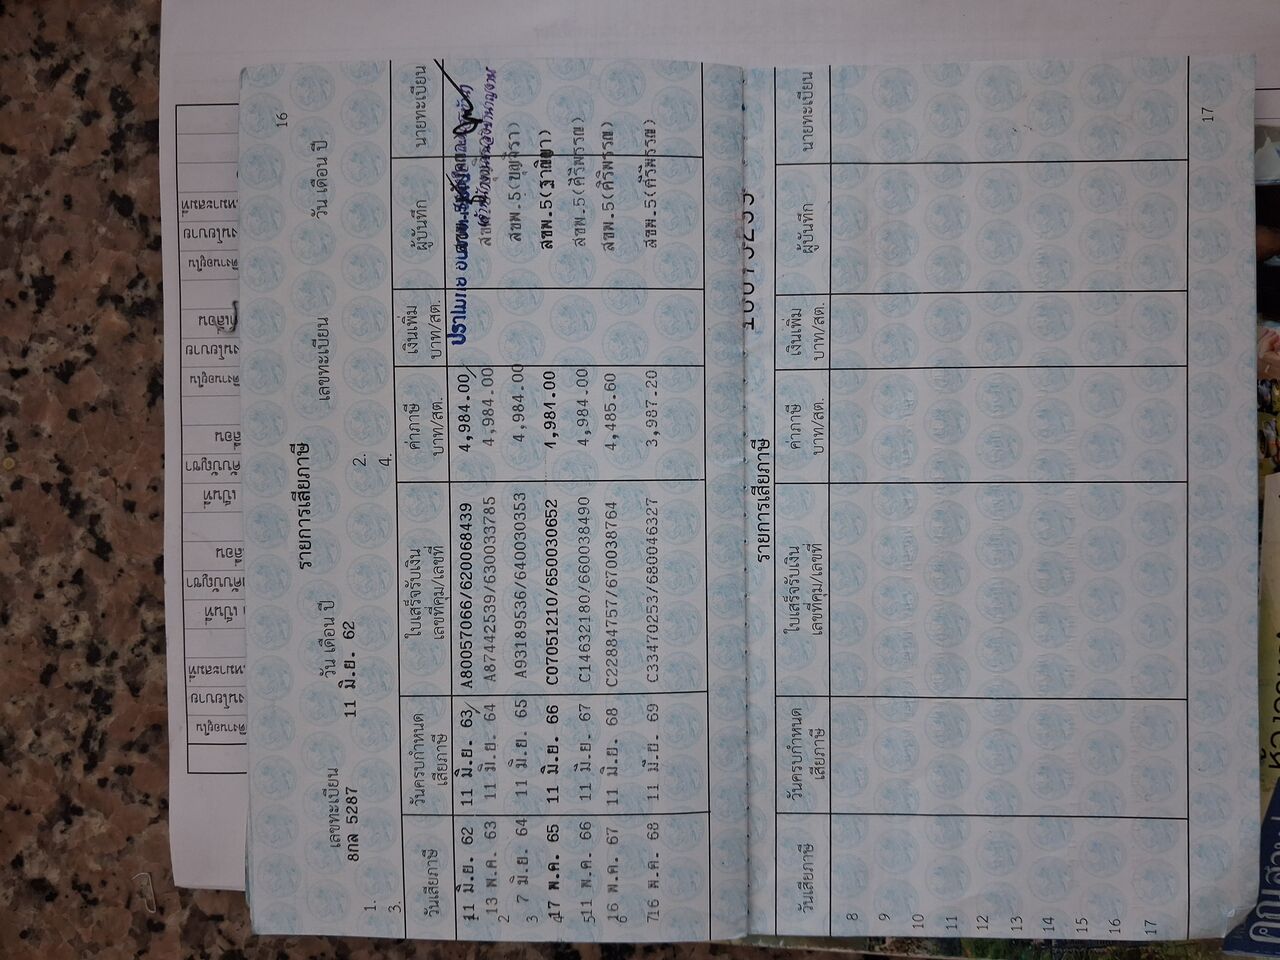 16
รายการเสียภาษี
เลขทะเบียน วัน เดือน ปี เลขทะเบียน วัน เดือน ปี
8กล 5287 11 มิ.ย. 62
1. 2.
3. 4.
วันเสียภาษี วันครบกำหนดเสียภาษี ใบเสร็จรับเงิน เลขที่คุม/เลขที่ ค่าภาษี บาท/สต. เงินเพิ่ม บาท/สต. ผู้บันทึก นายทะเบียน
1 11 มิ.ย. 62 11 มิ.ย. 63 A80057066/620068439 4,984.00
2 13 พ.ค. 63 11 มิ.ย. 64 A87442539/630033785 4,984.00
3 7 มิ.ย. 64 11 มิ.ย. 65 A93189536/640030353 4,984.00 สขพ.5(บุญจิรา)
4 17 พ.ค. 65 11 มิ.ย. 66 C07051210/650030652 4,984.00 สขพ.5(ฐาณิญา)
5 11 พ.ค. 66 11 มิ.ย. 67 C14632180/660038490 4,984.00 สขพ.5(ศิริพรรณ)
6 16 พ.ค. 67 11 มิ.ย. 68 C22884757/670038764 4,485.60 สขพ.5(ศิริพรรณ)
7 16 พ.ค. 68 11 มิ.ย. 69 C33470253/680046327 3,987.20 สขพ.5(ศิริพรรณ)
รายการเสียภาษี
วันเสียภาษี วันครบกำหนดเสียภาษี ใบเสร็จรับเงิน เลขที่คุม/เลขที่ ค่าภาษี บาท/สต. เงินเพิ่ม บาท/สต. ผู้บันทึก นายทะเบียน
8
9
10
11
12
13
14
15
16
17
17